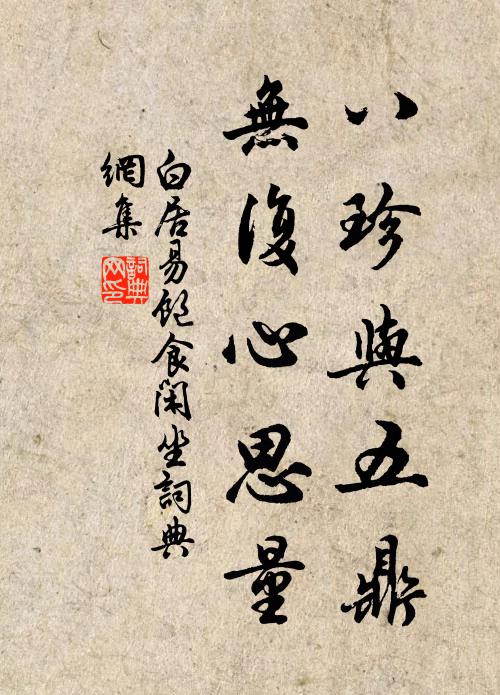 八珍與五鼎
無復心思量
白居易飽食閑坐詞典
網集
詞典
网印